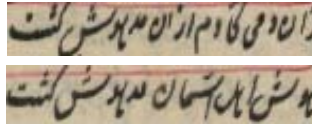 زان دمی کادم ازان مدهوش گشت
هوش اهل آسمان مدهوش گشت